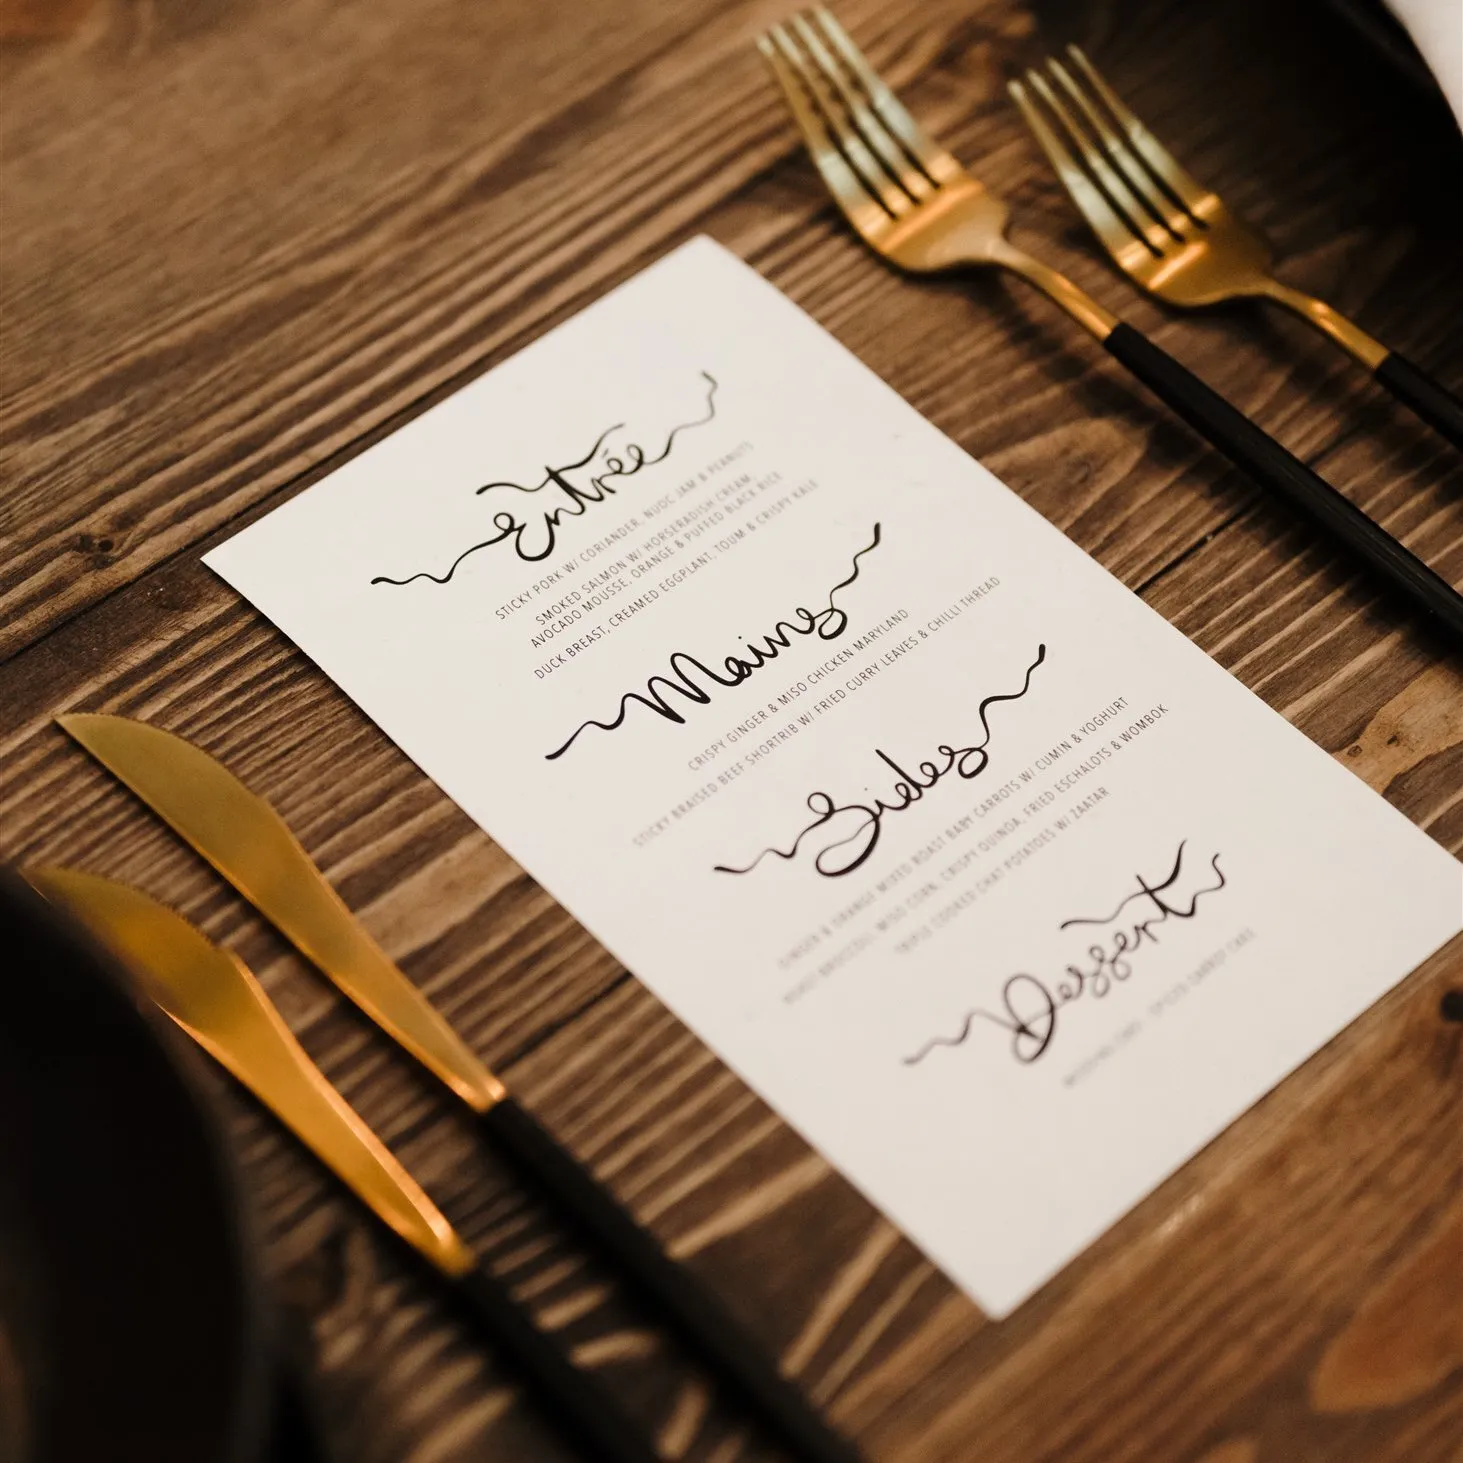 Entrée
STICKY PORK W/ CORIANDER, NUOC JAM & PEANUTS
SMOKED SALMON W/ HORSERADISH CREAM,
AVOCADO MOUSSE, ORANGE & PUFFED BLACK RICE
DUCK BREAST, CREAMED EGGPLANT, TOUM & CRISPY KALE
Mains
CRISPY GINGER & MISO CHICKEN MARYLAND
STICKY BRAISED BEEF SHORTRIB W/ FRIED CURRY LEAVES & CHILLI THREAD
Sides
GINGER & ORANGE MIXED ROAST BABY CARROTS W/ CUMIN & YOGHURT
ROAST BROCCOLI, MISO CORN, CRISPY QUINOA, FRIED ESCHALOTS & WOMBOK
TRIPLE COOKED CHAT POTATOES W/ ZAATAR
Dessert
WEDDING CAKE - SPICED CARROT CAKE